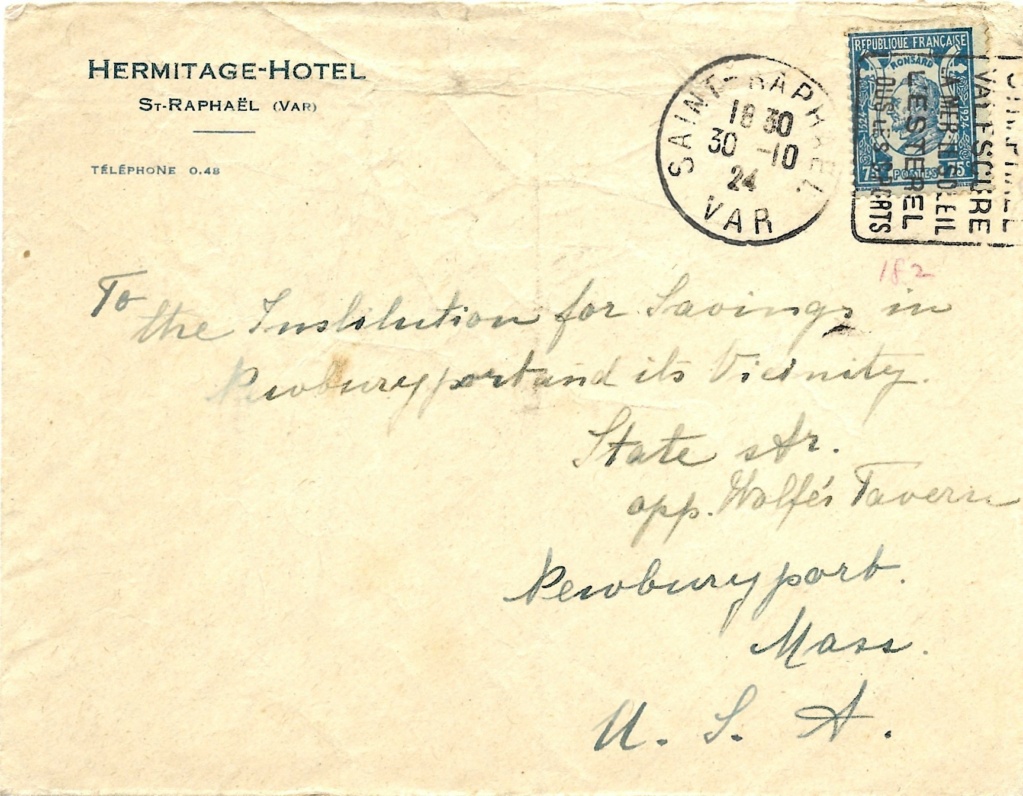 HERMITAGE-HOTEL
ST-RAPHAËL (VAR)
TÉLÉPHONE 0.48
SAINT-RAPHAEL
18 30
30 -10
24
VAR
REPUBLIQUE FRANÇAISE
RONSARD
1524
1924
75c POSTES 75c
VALESCURE
LA MER LE SOLEIL
L'ESTEREL
TOUS LES SPORTS
182
To
the Institution for Savings in
Newburyport and its Vicinity.
State str.
opp. Wolfe's Tavern
Newburyport.
Mass.
U. S. A.